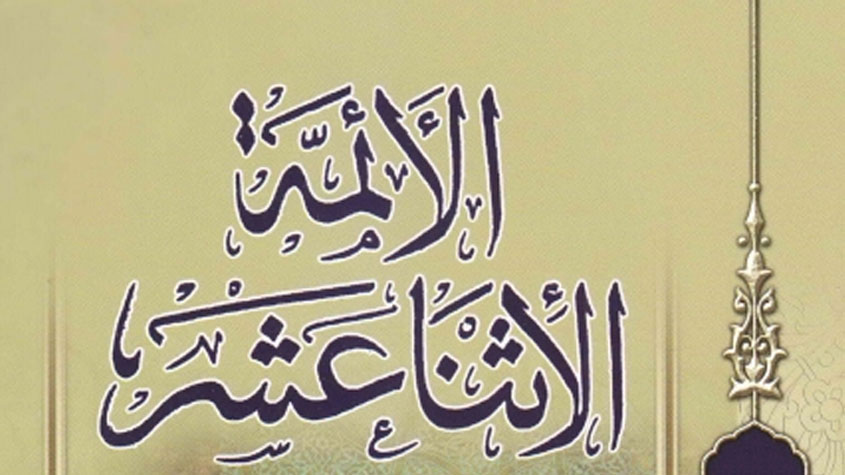 الأئمّة
الإثنا عشر